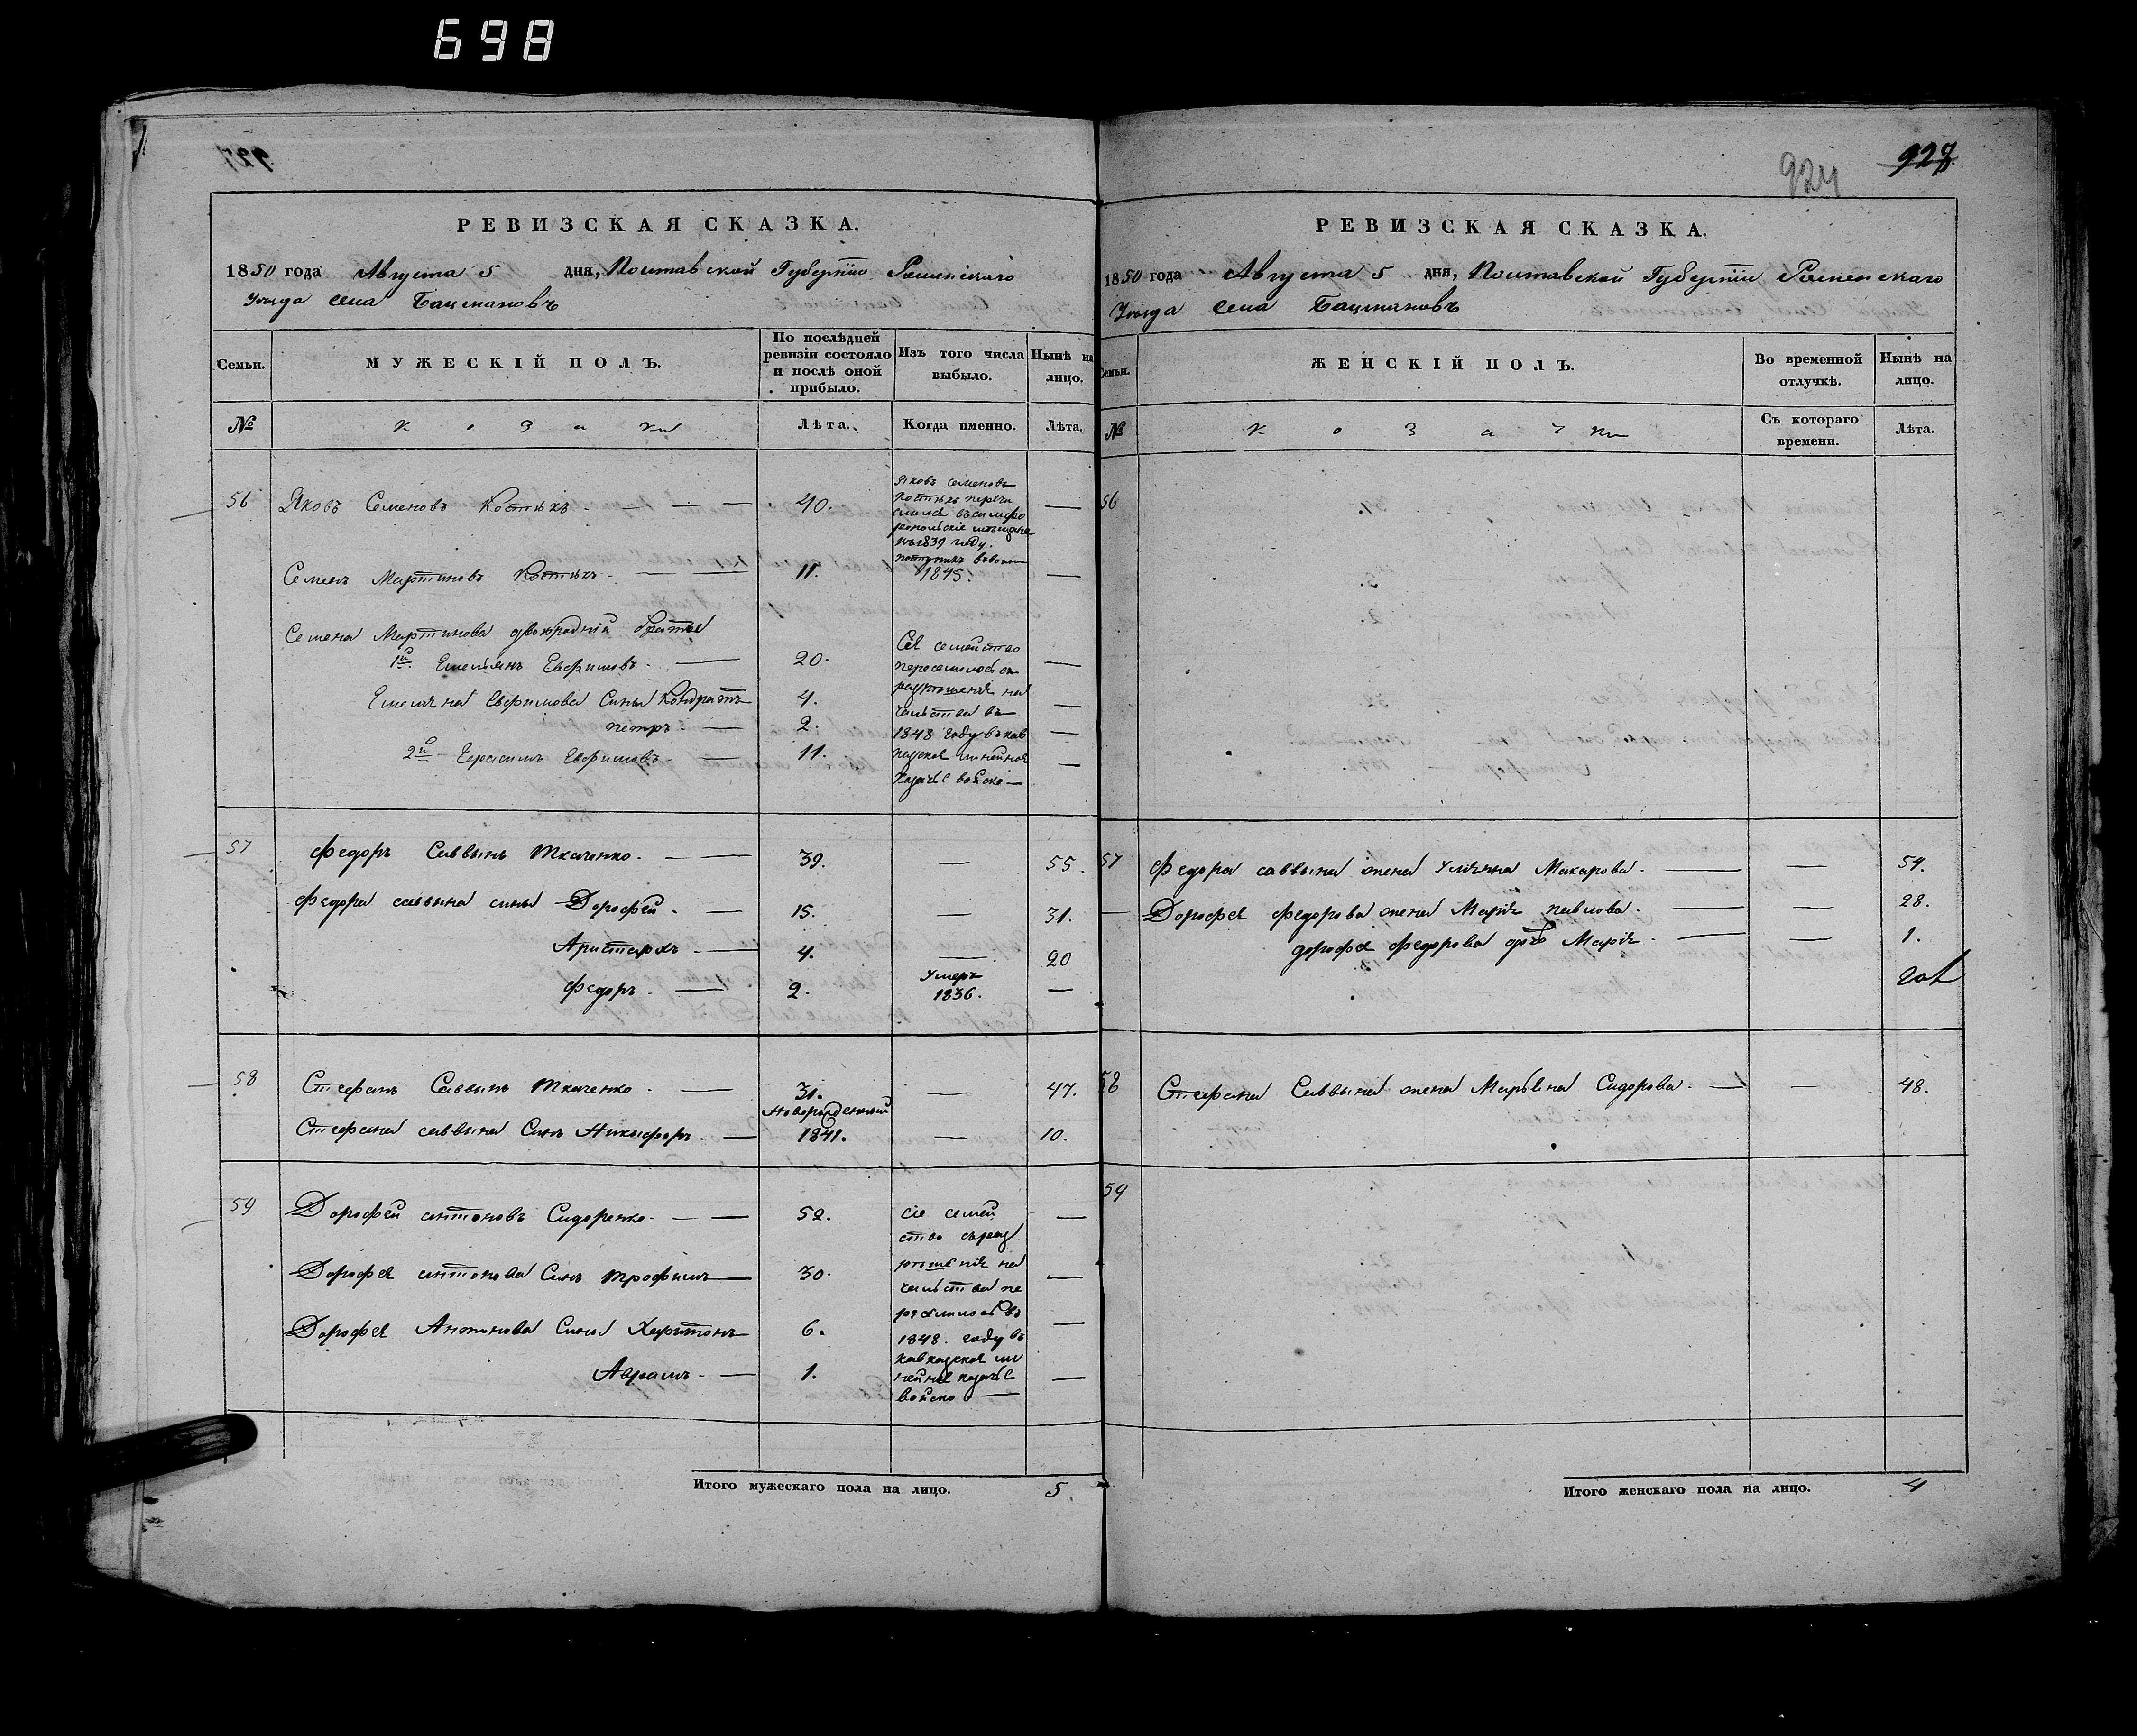 698
924
927
РЕВИЗСКАЯ СКАЗКА.
1850 года Августа 5 дня, Полтавской Губерніи Роменскаго
Уезда села Бацмановъ
Семьи.
МУЖЕСКІЙ ПОЛЪ.
По послѣдней ревизіи состояло и послѣ оной прибыло.
Изъ того числа выбыло.
Нынѣ на лицо.
№
Козаки
Лѣта.
Когда именно.
Лѣта.
56 Яковъ Семеновъ Костюкъ 40.
Яковъ Семеновъ
Костюкъ перечи
слился въ симфе
ропольскіе мещане
въ 1839 году.
Семенъ Мартиновъ Костюкъ 11.
1845.
Семена Мартинова двоюродній братья
1й Емельянъ Евфимовъ 20.
Емельяна Евфимова Сыны Кондратъ 4.
петръ 2.
2й Герасимъ Евфимовъ 11.
Сіе семейство
переселилось съ
разрешенія на
чальства въ
1848 году въ кав
казское линейное
казачье войско
57 Федоръ Саввинъ Ткаченко. 39. 55.
Федора саввина сыны Дорофей. 15. 31.
Аристархъ 4. 20
Федоръ 2. Умеръ 1836.
58 Стефанъ Саввинъ Ткаченко 31. 47.
Новорожденный
Стефана саввина Сынъ Никифоръ 1841. 10.
59 Дорофей антоновъ Сидоренко. 52.
Дорофея антонова Сынъ трофимъ 30.
Дорофея Антонова Сыны Харитонъ 6.
Аврамъ 1.
сіе семей
ство съ раз
решенія на
чальства пе
реселилось въ
1848. году въ
кавказское ли
нейное казачье
войско
Итого мужескаго пола на лицо. 5
РЕВИЗСКАЯ СКАЗКА.
1850 года Августа 5 дня, Полтавской Губерніи Роменскаго
Уезда села Бацмановъ
Семьи.
ЖЕНСКІЙ ПОЛЪ.
Во временной отлучкѣ.
Нынѣ на лицо.
№
Козачки
Съ котораго времени.
Лѣта.
56
57 Федора саввина жена Улияна Макарова. 54.
Дорофея федорова жена Марія павлова. 28.
дорофея федорова дочь Марія 1.
58 Стефана Саввина жена Марьяна Сидорова. 48.
59
Итого женскаго пола на лицо. 4